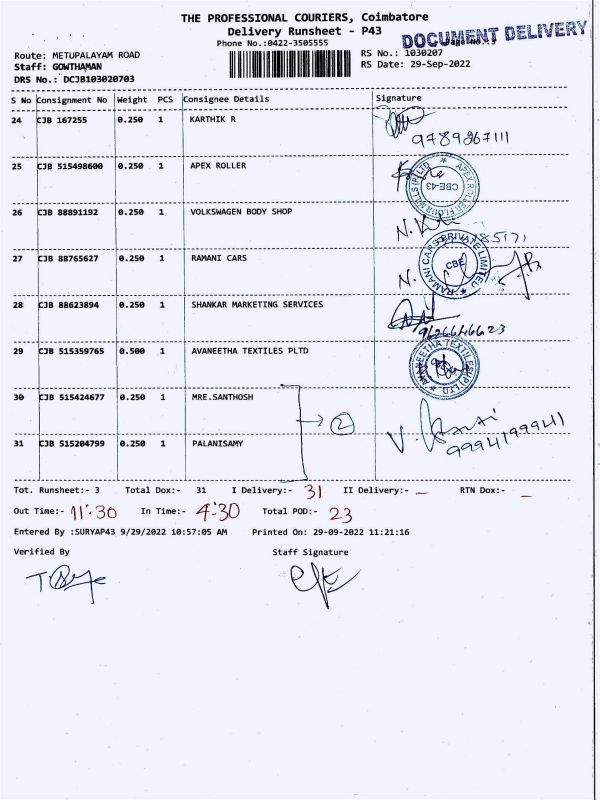 THE PROFESSIONAL COURIERS, Coimbatore
Delivery Runsheet - P43
Phone No.:0422-3505555
DOCUMENT DELIVERY
Route: METUPALAYAM ROAD
RS No.: 1030207
Staff: GOWTHAMAN
RS Date: 29-Sep-2022
DRS No.: DCJB103020703
S No Consignment No Weight PCS Consignee Details Signature
24 CJB 167255 0.250 1 KARTHIK R
9789867111
25 CJB 515498600 0.250 1 APEX ROLLER
APEX ROLLER FLOUR MILLS (P) LTD
CBE-43
26 CJB 88891192 0.250 1 VOLKSWAGEN BODY SHOP
27 CJB 88765627 0.250 1 RAMANI CARS
RAMANI CARS PRIVATE LIMITED
CBE
28 CJB 88623894 0.250 1 SHANKAR MARKETING SERVICES
9626646623
29 CJB 515359765 0.500 1 AVANEETHA TEXTILES PLTD
AVANEETHA TEXTILES (P) LTD
30 CJB 515424677 0.250 1 MRE.SANTHOSH
2
31 CJB 515204799 0.250 1 PALANISAMY
9994199941
Tot. Runsheet:- 3 Total Dox:- 31 I Delivery:- 31 II Delivery:- - RTN Dox:- -
Out Time:- 11:30 In Time:- 4:30 Total POD:- 23
Entered By :SURYAP43 9/29/2022 10:57:05 AM Printed On: 29-09-2022 11:21:16
Verified By Staff Signature